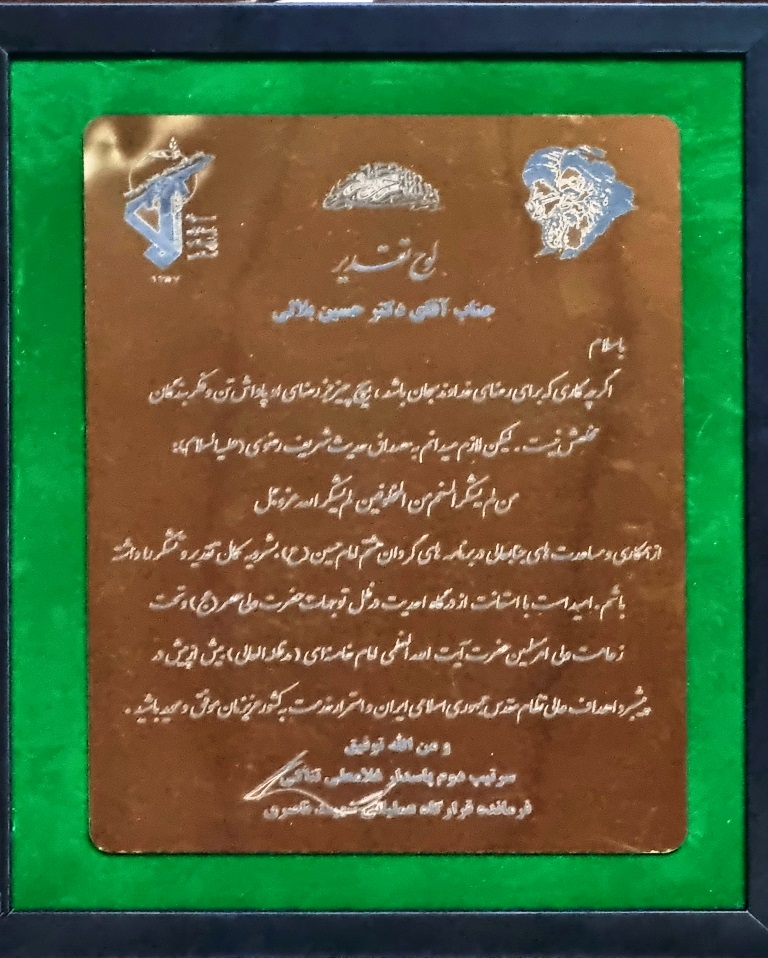 ۱۳۵۷
لوح تقدیر
جناب آقای دکتر حسین بلالی
باسلام
اگرچه کاری که برای رضای خداوند سبحان باشد، هیچ چیز جز رضای او پاداش تن و فکر بندگان
مخلصش نیست. لیکن لازم میدانم به مصداق حدیث شریف رضوی (علیه السلام):
من لم یشکر المنعم من المخلوقین لم یشکر الله عزوجل
از همکاری و مساعدت های جنابعالی در برنامه های گردان هشتم امام حسین (ع)، کمال تقدیر و تشکر را داشته
باشم. امید است با استعانت از درگاه احدیت در ظل توجهات حضرت ولی عصر (عج) و تحت
زعامت ولی امر مسلمین حضرت آیت الله العظمی امام خامنه‌ای (مدظله العالی) بیش از پیش در
پیشبرد اهداف عالی نظام مقدس جمهوری اسلامی ایران و استمرار خدمت به کشور عزیزمان موفق و موید باشید.
و من الله توفیق
سرتیپ دوم پاسدار غلامعلی
فرمانده قرارگاه عملیاتی شهید ناصری